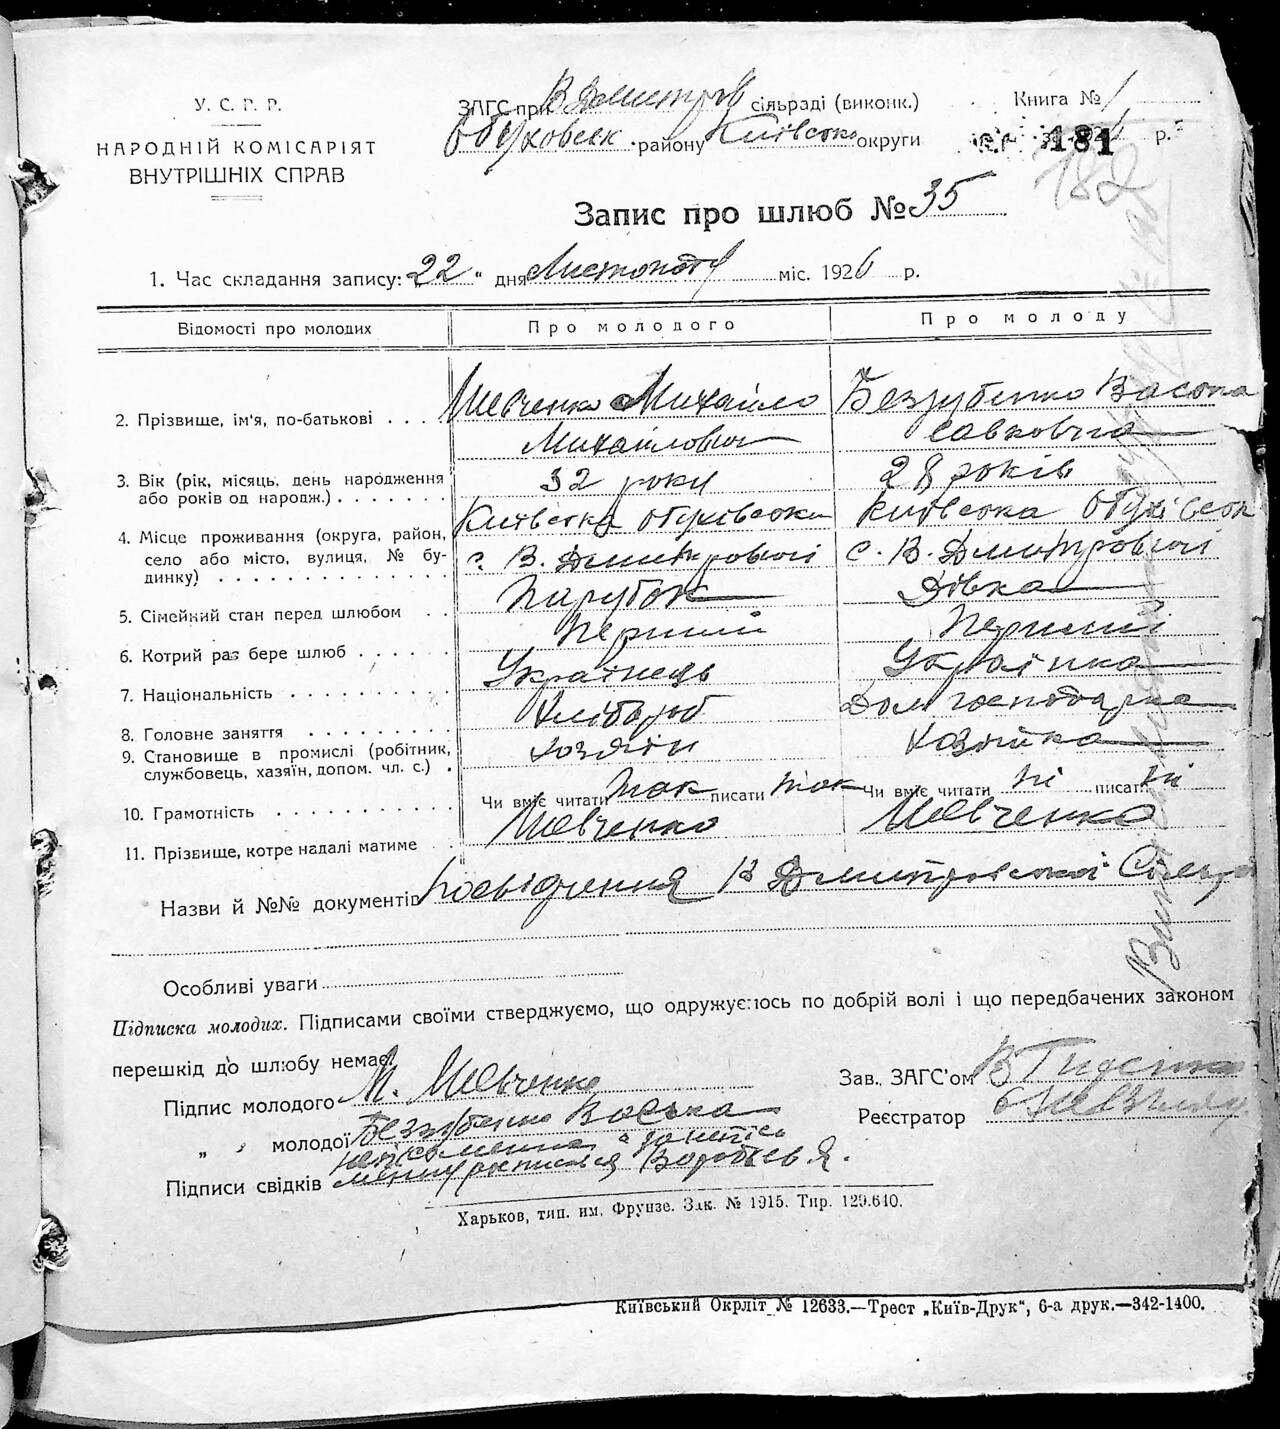 У. С. Р. Р.
НАРОДНІЙ КОМІСАРІЯТ
ВНУТРІШНІХ СПРАВ
ЗАГС при В Дмитров сільраді (виконк.)
Обуховськ району Київсько округи
Книга № 1
181 р.
182
Запис про шлюб № 35
1. Час складання запису: 22 " дня Листопада міс. 1926 р.
Відомості про молодих Про молодого Про молоду
2. Прізвище, ім'я, по-батькові . . . . Шевченко Михайло Беззубенко Васька
Михайлович Савковна
3. Вік (рік, місяць, день народження 32 роки 28 років
або років од народж.) . . . . . . .
4. Місце проживання (округа, район, Київська Обухівська Київська Обухівськ
село або місто, вулиця, № бу- с. В. Дмитровичі с. В. Дмитровичі
динку) . . . . . . . . . . . . . . .
5. Сімейний стан перед шлюбом . . Парубок Дівка
6. Котрий раз бере шлюб . . . . . . Перший Перший
7. Національність . . . . . . . . . . Українець Українка
8. Головне заняття . . . . . . . . . Хлібороб Дом господарка
9. Становище в промислі (робітник, хозяїн хозяйка
службовець, хазяїн, допом. чл. с.) .
10. Грамотність . . . . . . . . . . . Чи вміє читати так писати так Чи вміє читати ні писати ні
11. Прізвище, котре надалі матиме . . Шевченко Шевченко
Назви й №№ документів Посвідчення В Дмитровської Сільра
Особливі уваги
Підписка молодих. Підписами своїми стверджуємо, що одружуємось по добрій волі і що передбачених законом
перешкід до шлюбу немає.
Підпис молодого М. Шевченко
Зав. ЗАГС'ом
„ молодої Беззубенко Васька
Реєстратор
неписьменна а за неї
Підписи свідків росписался Воробьев Я.
Харьков, тип. им. Фрунзе. Зак. № 1915. Тир. 129.640.
Київський Окрліт № 12633.—Трест „Київ-Друк“, 6-а друк.—342-1400.